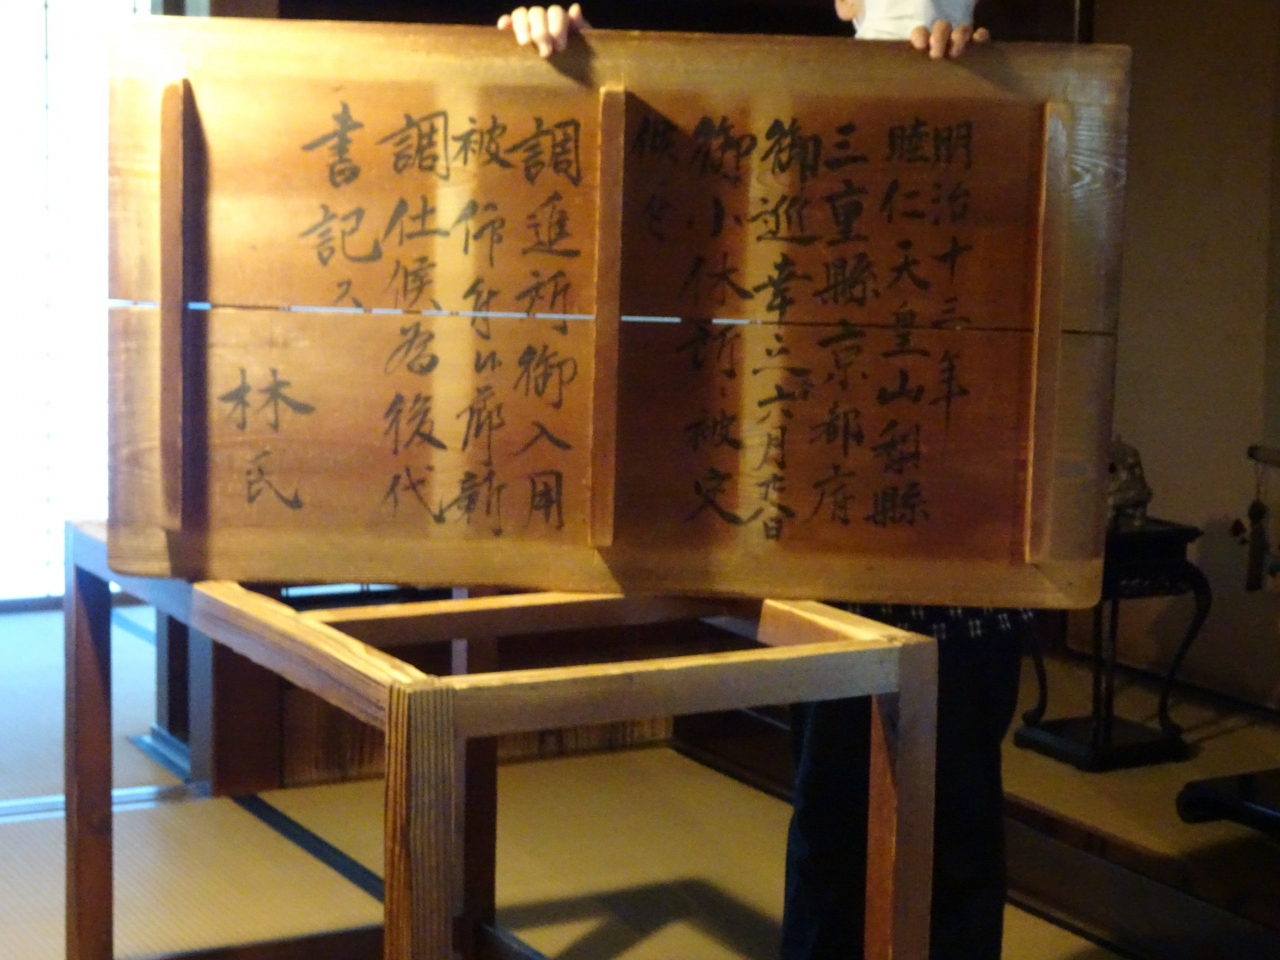 明治十三年
睦仁天皇山梨縣
三重縣京都府
御巡幸之六月廿八日
御小休所ニ被定
候を
調進所御入用
被仰付候節新
調仕候為後代
書記ス
林氏